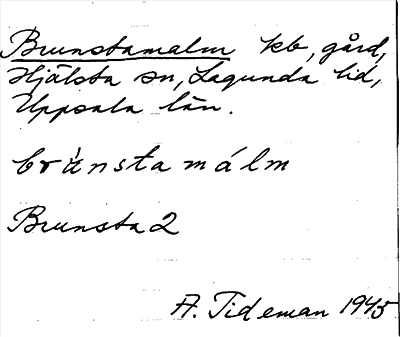 Brunstamalm kb, gård,
Hjälsta sn, Lagunda hd,
Uppsala län.
brùnsta málm
Brunsta 2
A. Tideman 1945